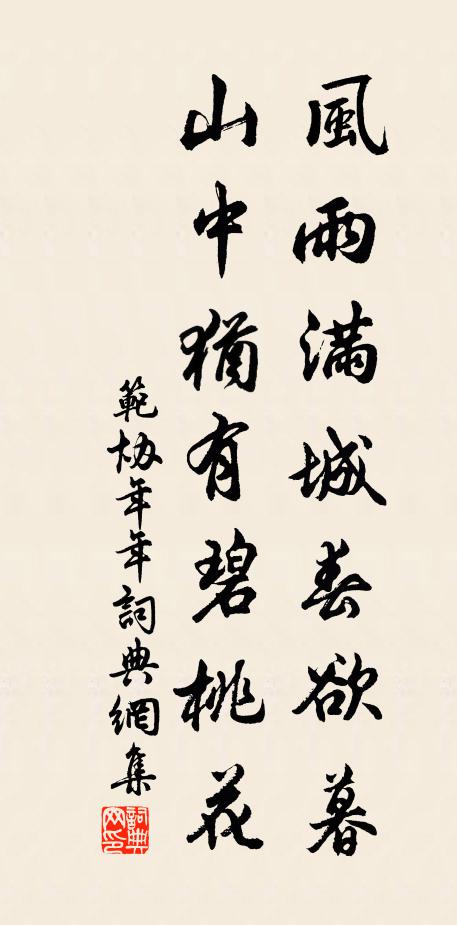 風雨滿城春欲暮
山中猶有碧桃花
範協年年詞典網集
詞典
网印